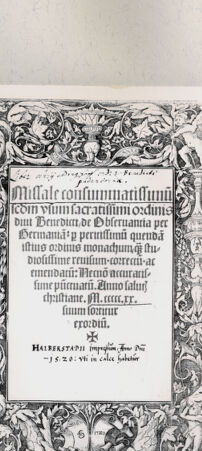 Missale consummatissimū
scdm vsum sacratissimi ordinis
diui Benedicti, de Obseruantia per
Germaniā: p peritissimū quendā
istius ordinis monachum, q̃ stu-
diosissime reuisum- correctū- ac
emendatū: Necnō accuratis-
sime pūctuatū. Anno salut͛
christiane, M.ccccc.xx.
suum sortitur
exordiū.
HALBERSTADII impressum, Anno Dn̄i
-1520: vti in calce habetur